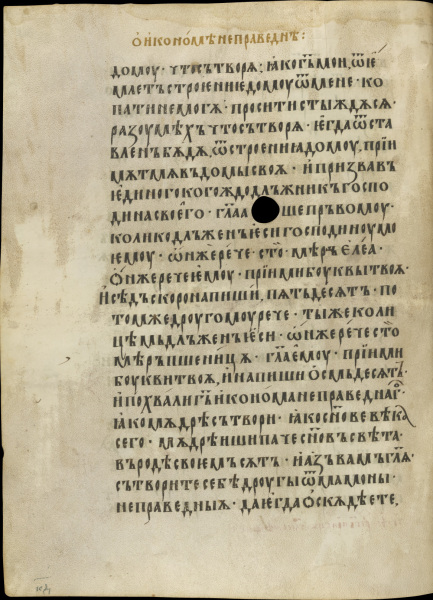 ѽ и҆коно́мѣ неправеднѣ :
домоу · что сътворѧ : ꙗко г҃ь мои, ѿе́
маетъ строѥниѥ домоу ѿ мене · ко
пати не могѫ · просити стыждѫсѧ ·
разоумѣхъ что сътворѫ · ѥгда ѿста
вленъ бѫдѫ, ѿ строѥниа домоу, прїи
мѫт мѧ въ домы своѫ · и призвавъ
ѥдиного когождо длъжникъ госпо
дина своѥго · гл҃аа ше пръвомоу ·
колико длъженъ ѥси господиноу мо
ѥмоу · ѡ҆нже рече · сто мѣръ ѥлеа ·
ѡ҆нже рече ѥмоу · прїими боукъвы твоѧ ·
и сѣдъ скоро напиши, пѧтьдесѧтъ · по
томже дроугомоу рече · ты же коли
цѣмь длъженъ ѥси · ѡ҆нже рече сто
мѣръ пшеницѧ · гл҃а ѥмоу · прїими
боукви твоѧ, и напиши осмьдесѧтъ ·
и похвали г҃ь иконома неправеднаго
ꙗко мѫдрѣ сътвори · ꙗко сн҃ове вѣка
сего · мѫдрѣиши паче сн҃овъ свѣта ·
въ родѣ своемъ сѫтъ · и азъ вамъ гл҃ѭ ·
сътворите себѣ дроугы ѿ мамоны ·
неправедныѧ · да ѥгда оскѫдѣете,